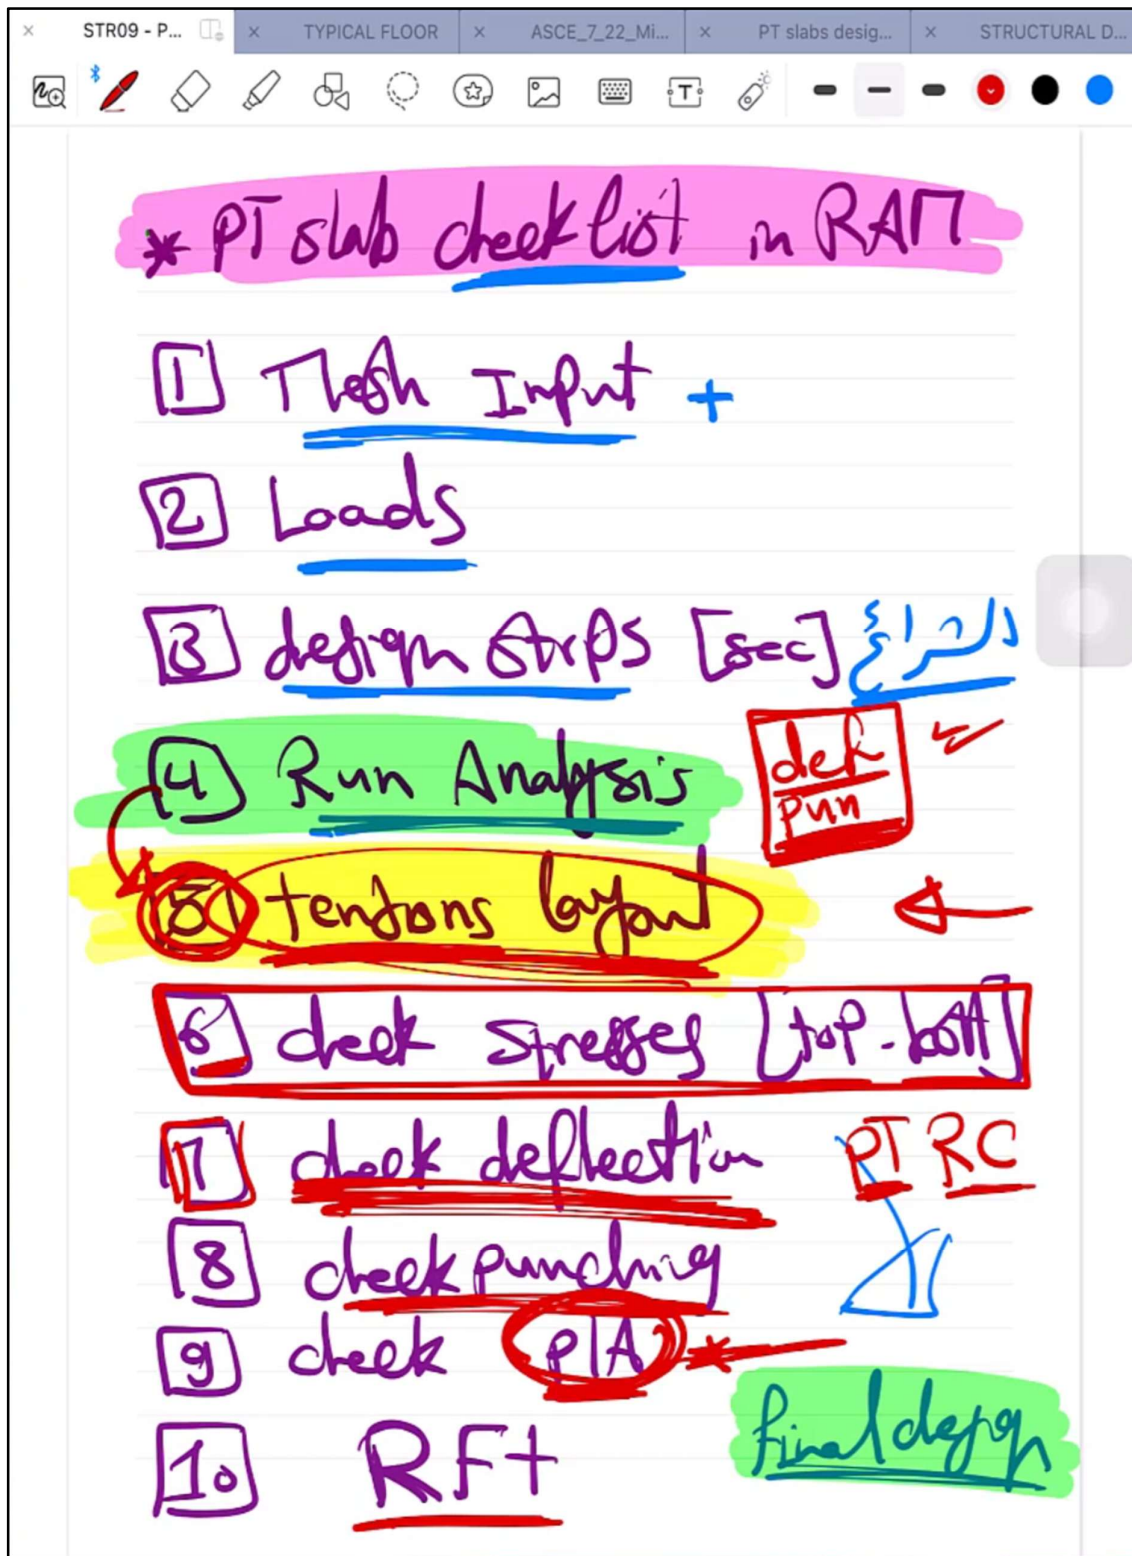 STR09 - P... TYPICAL FLOOR ASCE_7_22_Mi... PT slabs desig... STRUCTURAL D...
* PT slab check list in RAM
1 Mesh Input +
2 Loads
3 design strps [sec] الشرائح
4 Run Analysis def
pun
5 tendons layout
6 check stresses [top-bott]
7 check deflection PT RC
8 check punching
9 check P/A *
final design
10 RFt